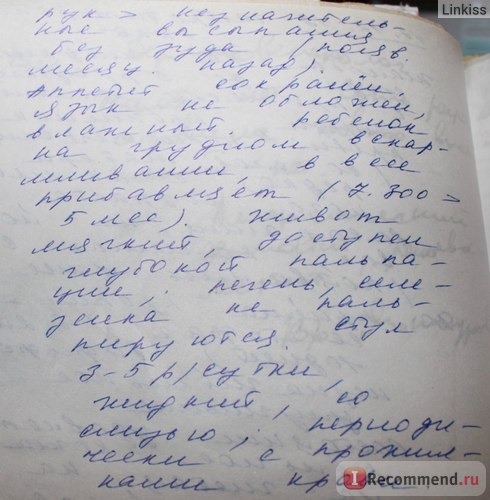 Linkiss
рук > незначитель-
ные высыпания
без зуда (появ.
месяц назад).
Аппетит сохранён.
Язык не обложен,
влажный. Ребенок
на грудном вскар-
мливании, в весе
прибавляет (7.300 >
5 мес). Живот
мягкий, доступен
глубокой пальпа-
ции. Печень, селе-
зенка не паль-
пируются. Стул
3-5 р/сутки,
жидкий, со
слизью, периоди-
чески с прожил-
ками крови
iRecommend.ru